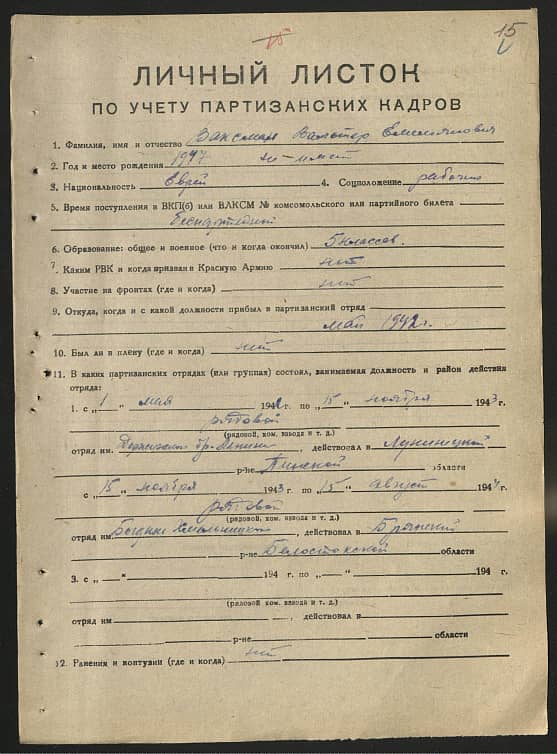 15
15
ЛИЧНЫЙ ЛИСТОК
ПО УЧЕТУ ПАРТИЗАНСКИХ КАДРОВ
1. Фамилия, имя и отчество Ваксман
2. Год и место рождения
3. Национальность Еврей 4. Соцположение рабочий
5. Время поступления в ВКП(б) или ВЛКСМ № комсомольского или партийного билета
беспартийный
6. Образование: общее и военное (что и когда окончил) 5 классов.
7. Каким РВК и когда призван в Красную Армию нет
8. Участие на фронтах (где и когда) нет
9. Откуда, когда и с какой должности прибыл в партизанский отряд
май 1942 г.
10. Был ли в плену (где и когда) нет
11. В каких партизанских отрядах (или группах) состоял, занимаемая должность и район действия
отряда:
1. с „1“ мая 1942 г. по „15“ ноября 1943 г.
рядовой
(рядовой, ком. взвода и т. д.)
отряд им. Дзержинского бр. Ленина, действовал в Лунинецкой
р-не Пинской области
с „15“ ноября 1943 г. по „15“ август 1944 г.
рядовой
(рядовой, ком. взвода и т. д.)
отряд им Богдана Хмельницкого, действовал в
р-не Белостокской области
3. с „ “ 194 г. по „ “ 194 г.
(рядовой ком. взвода и т. д.)
отряд им , действовал в
р-не области
12. Ранения и контузии (где и когда) нет